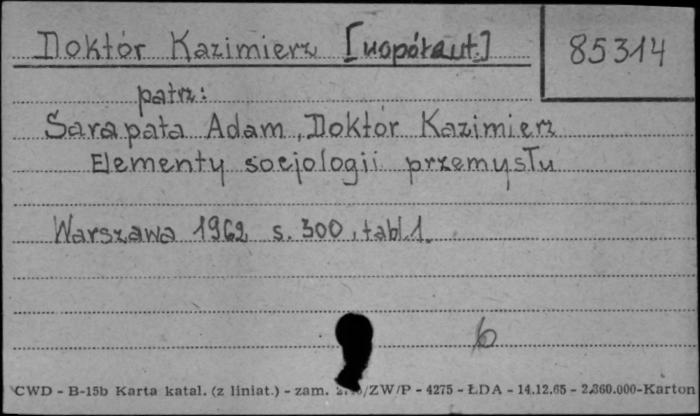 Doktór Kazimierz [współaut.]
85314
patrz:
Sarapata Adam, Doktór Kazimierz
Elementy socjologii przemysłu
Warszawa 1962 s. 300, tabl. 1.
6
CWD - B-15b Karta katal. (z liniat.) - zam. /ZW/P - 4275 - ŁDA - 14.12.65 - 2.360.000-Karton